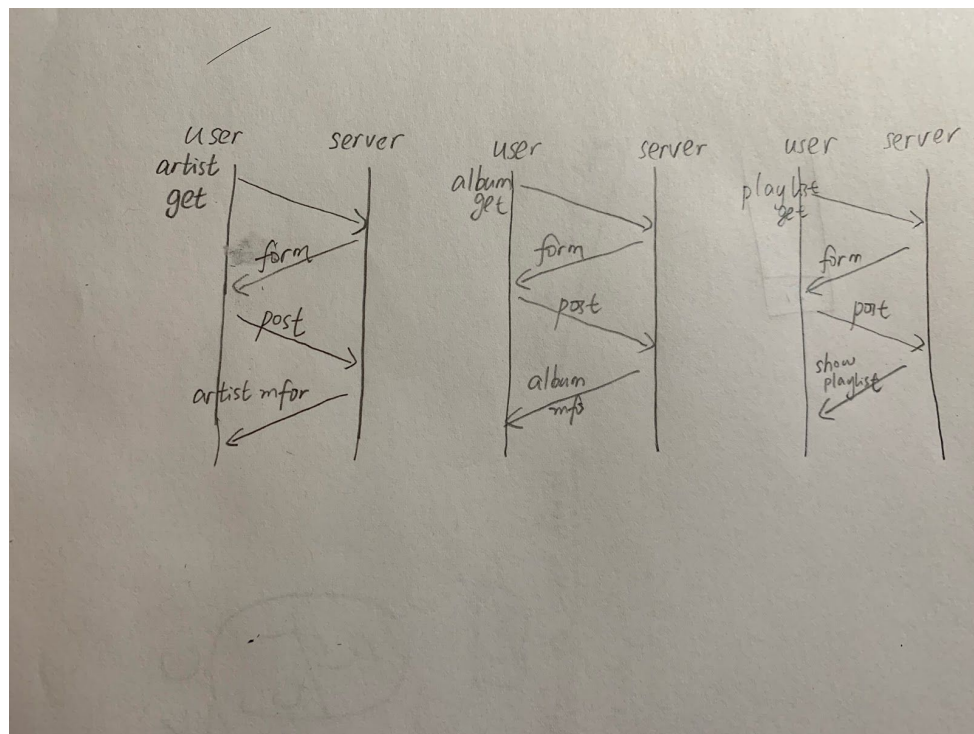 user
server
artist
get
form
post
artist infor
user
server
album
get
form
post
album
info
user
server
playlist
get
form
post
show
playlist